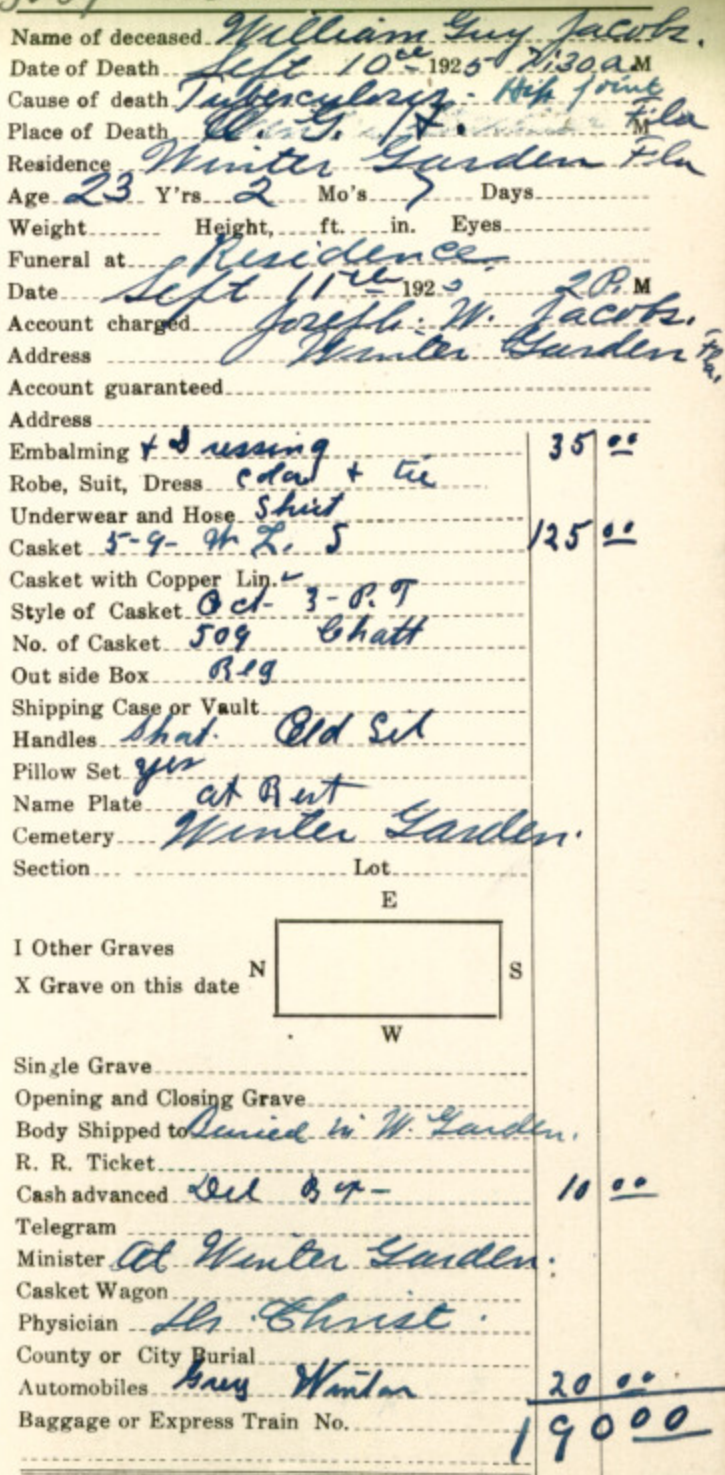 Name of deceased William Guy Jacobs.
Date of Death Sept 10th 1925 :30 a.M
Cause of death Tuberculosis - Hip joint
Place of Death W. G. Fla M
Residence Winter Garden Fla
Age 23 Y'rs 2 Mo's 7 Days
Weight Height, ft. in. Eyes
Funeral at Residence
Date Sept 11th 1925 2 P. M
Account charged Joseph. W. Jacobs.
Address Winter Garden Fla.
Account guaranteed
Address
Embalming + Dressing 35 00
Robe, Suit, Dress Colar + tie
Underwear and Hose Shirt
Casket 5-9- W L. S 125 00
Casket with Copper Lin.
Style of Casket Oct- 3-P. T
No. of Casket 509 Chatt
Out side Box Reg
Shipping Case or Vault
Handles Shat. Old Sil
Pillow Set yes
Name Plate at Rest
Cemetery Winter Garden.
Section Lot
E
I Other Graves
N S
X Grave on this date
W
Single Grave
Opening and Closing Grave
Body Shipped to Buried in W. Garden.
R. R. Ticket
Cash advanced Del Bx - 10 00
Telegram
Minister At Winter Garden.
Casket Wagon
Physician Dr. Christ.
County or City Burial
Automobiles Grey Winton 20 00
Baggage or Express Train No. 190 00